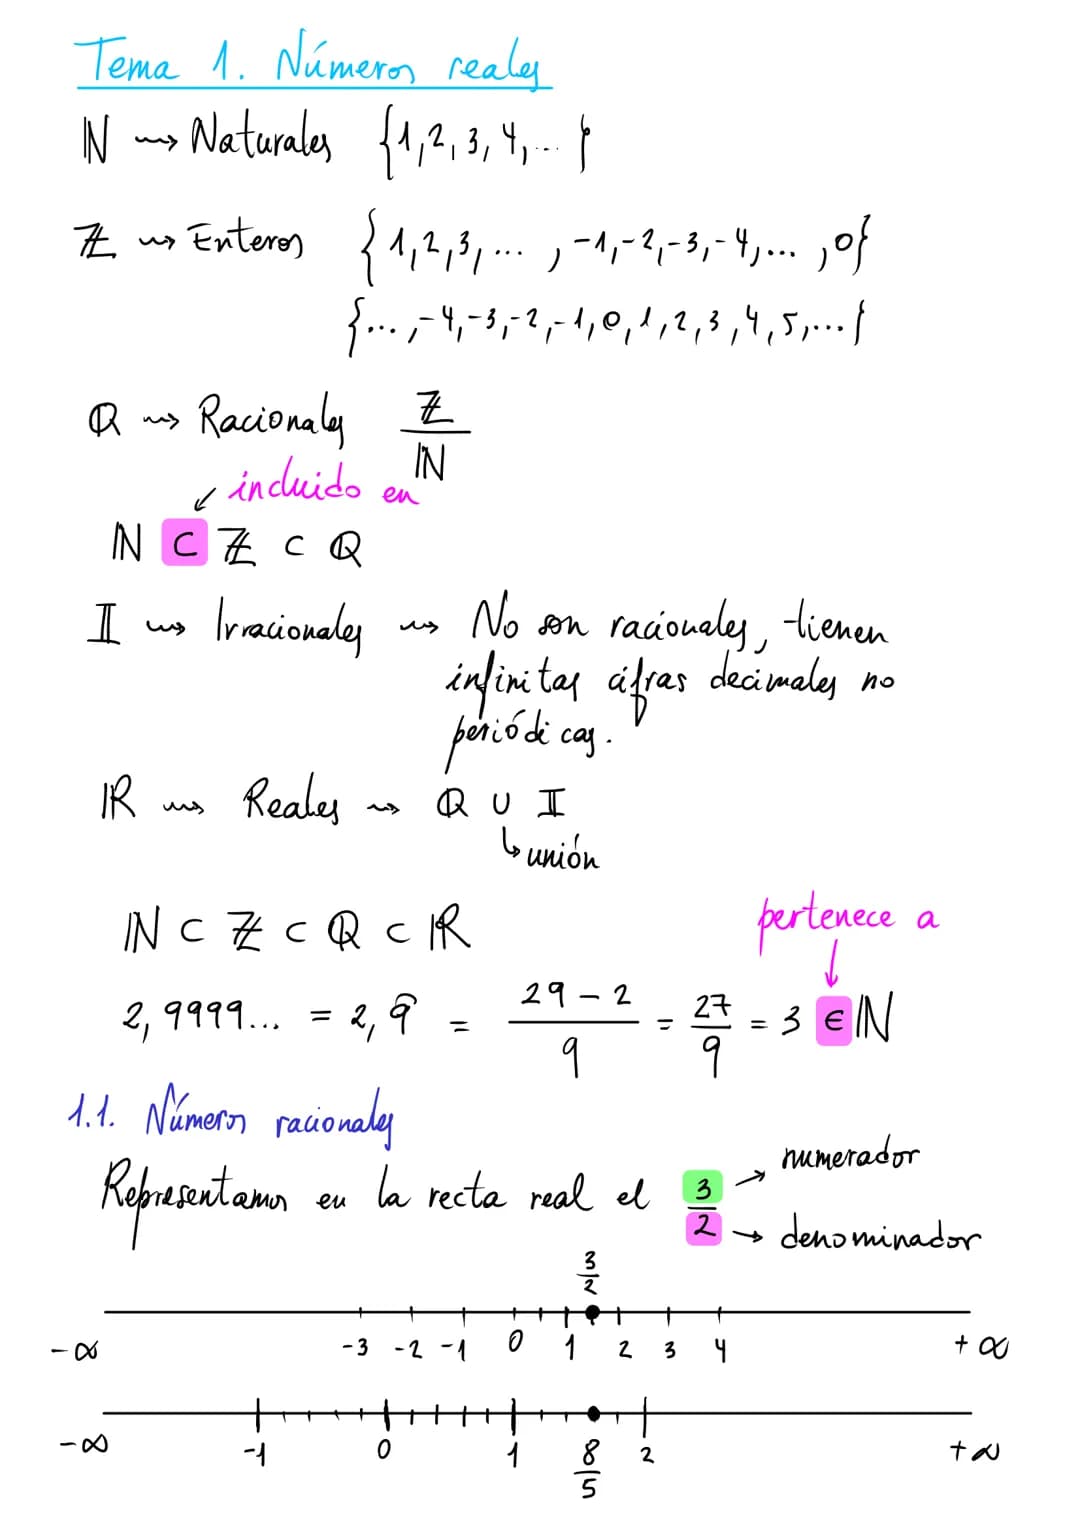 Tema 1. Números reales
ℕ ⇝ Naturales {1,2,3,4,...}
ℤ ⇝ Enteros {1,2,3,..., -1,-2,-3,-4,...,0}
{...,-4,-3,-2,-1,0,1,2,3,4,5,...}
ℚ ⇝ Racionales ℤ/ℕ
incluido en
ℕ ⊂ ℤ ⊂ ℚ
𝕀 ⇝ Irracionales ⇝ No son racionales, tienen
infinitas cifras decimales no
periódicas.
ℝ ⇝ Reales ⇝ ℚ ∪ 𝕀
↳ unión
ℕ ⊂ ℤ ⊂ ℚ ⊂ ℝ
pertenece a
2,9999... = 2,9̂ = (29-2)/9 = 27/9 = 3 ∈ ℕ
1.1. Números racionales
Representamos en la recta real el 3/2
→ numerador
→ denominador
3/2
-∞ -3 -2 -1 0 1 2 3 4 +∞
-∞ -1 0 1 8/5 2 +∞